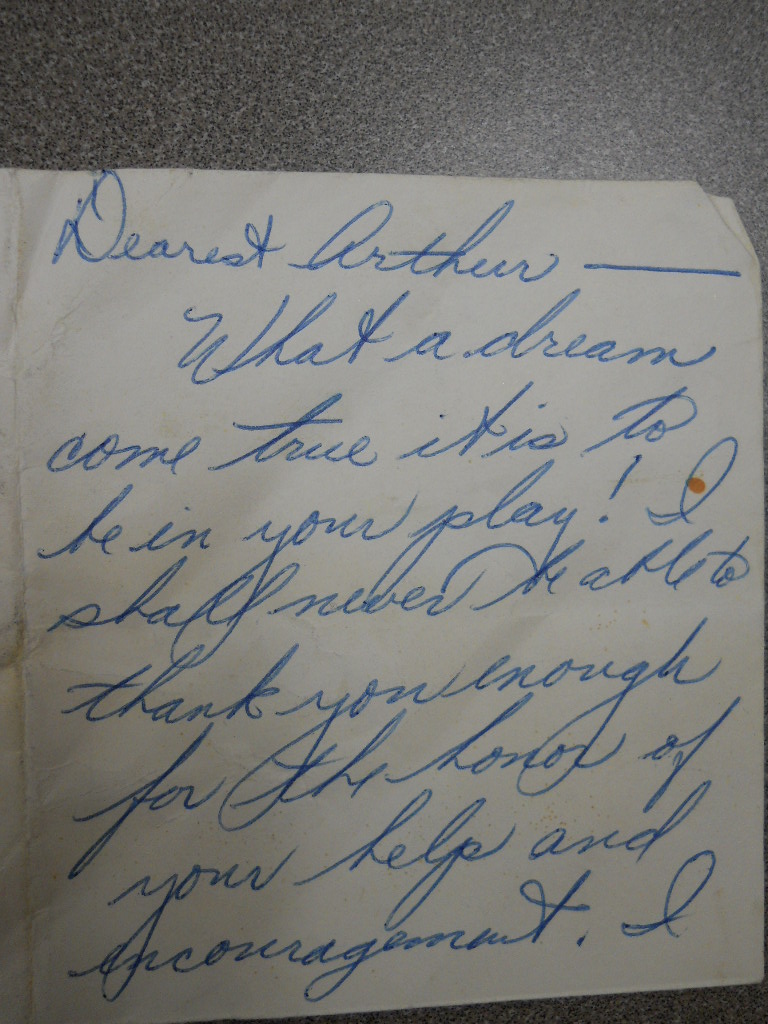 Dearest Arthur —
What a dream
come true it is to
be in your play! I
shall never be able to
thank you enough
for the honor of
your help and
encouragement. I